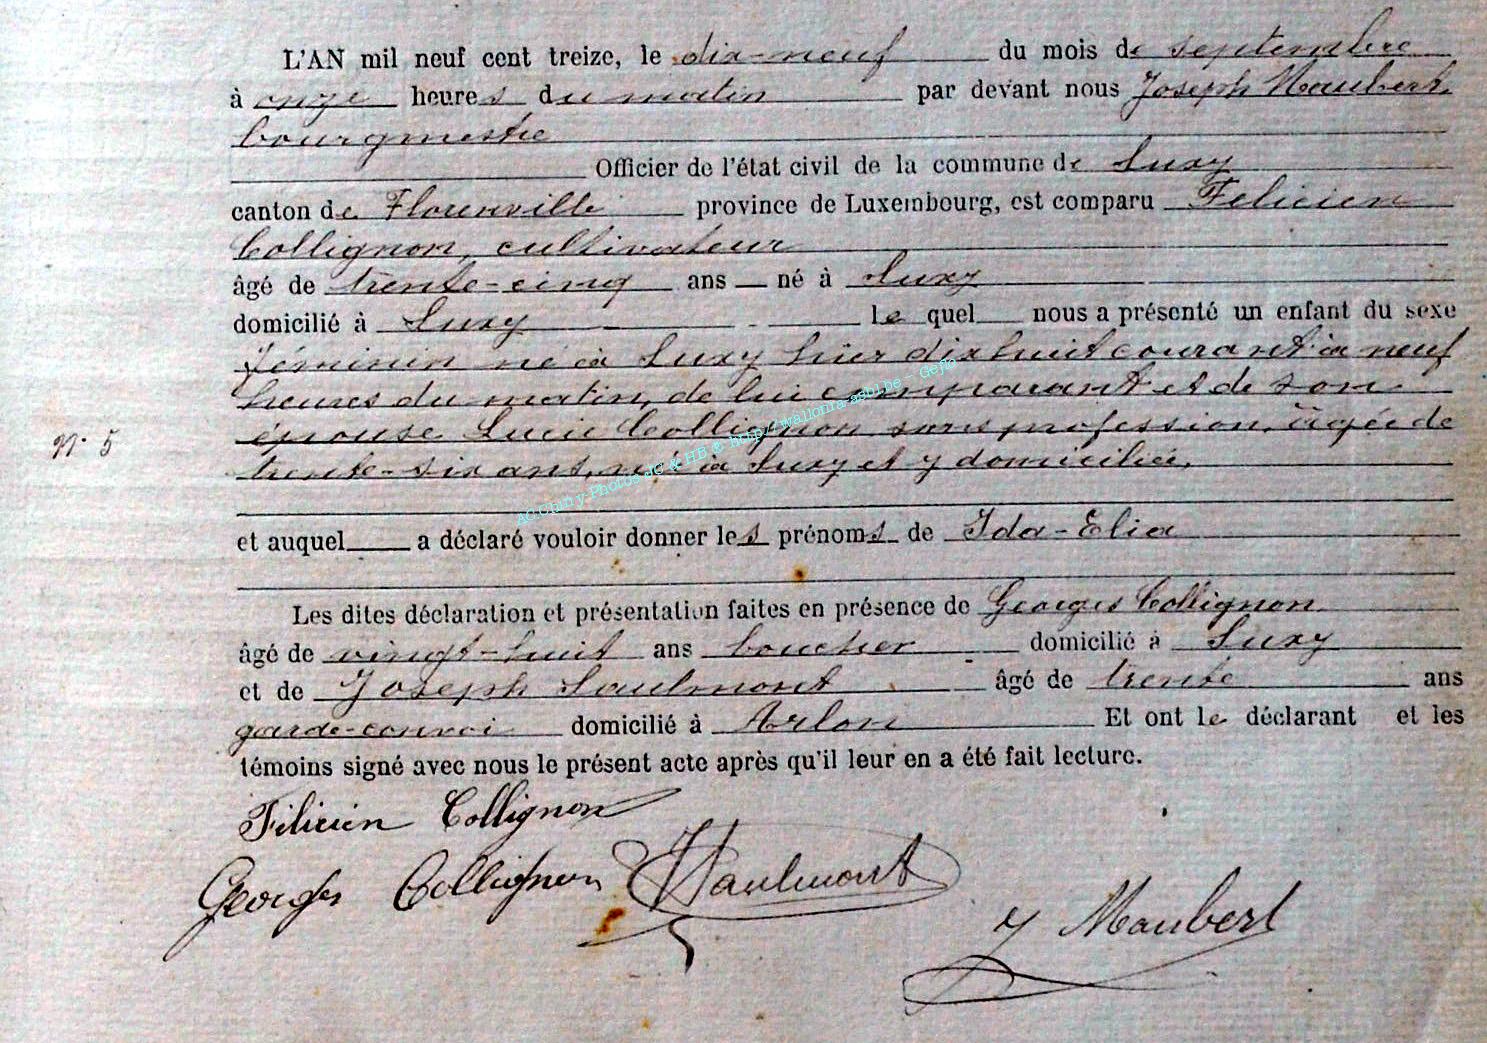 L'AN mil neuf cent treize, le dix-neuf du mois de septembre
à onze heures du matin par devant nous Joseph Maubert,
bourgmestre
Officier de l'état civil de la commune de Suxy
canton de Florenville province de Luxembourg, est comparu Felicien
Collignon, cultivateur
âgé de trente-cinq ans né à Suxy
domicilié à Suxy Le quel nous a présenté un enfant du sexe
féminin né à Suxy hier dix huit courant à neuf
heures du matin, de lui comparant et de son
épouse Lucie Collignon sans profession, âgée de
n° 5
trente-six ans, né à Suxy et y domiciliée,
et auquel a déclaré vouloir donner les prénoms de Ida-Elia
Les dites déclaration et présentation faites en présence de Georges Collignon
âgé de vingt-huit ans boucher domicilié à Suxy
et de Joseph Saulmont âgé de trente ans
garde-convoi domicilié à Arlon Et ont le déclarant et les
témoins signé avec nous le présent acte après qu'il leur en a été fait lecture.
Félicien Collignon
Georges Collignon JSaulmont
J Maubert
AC Chiny-Photos JC & HB &